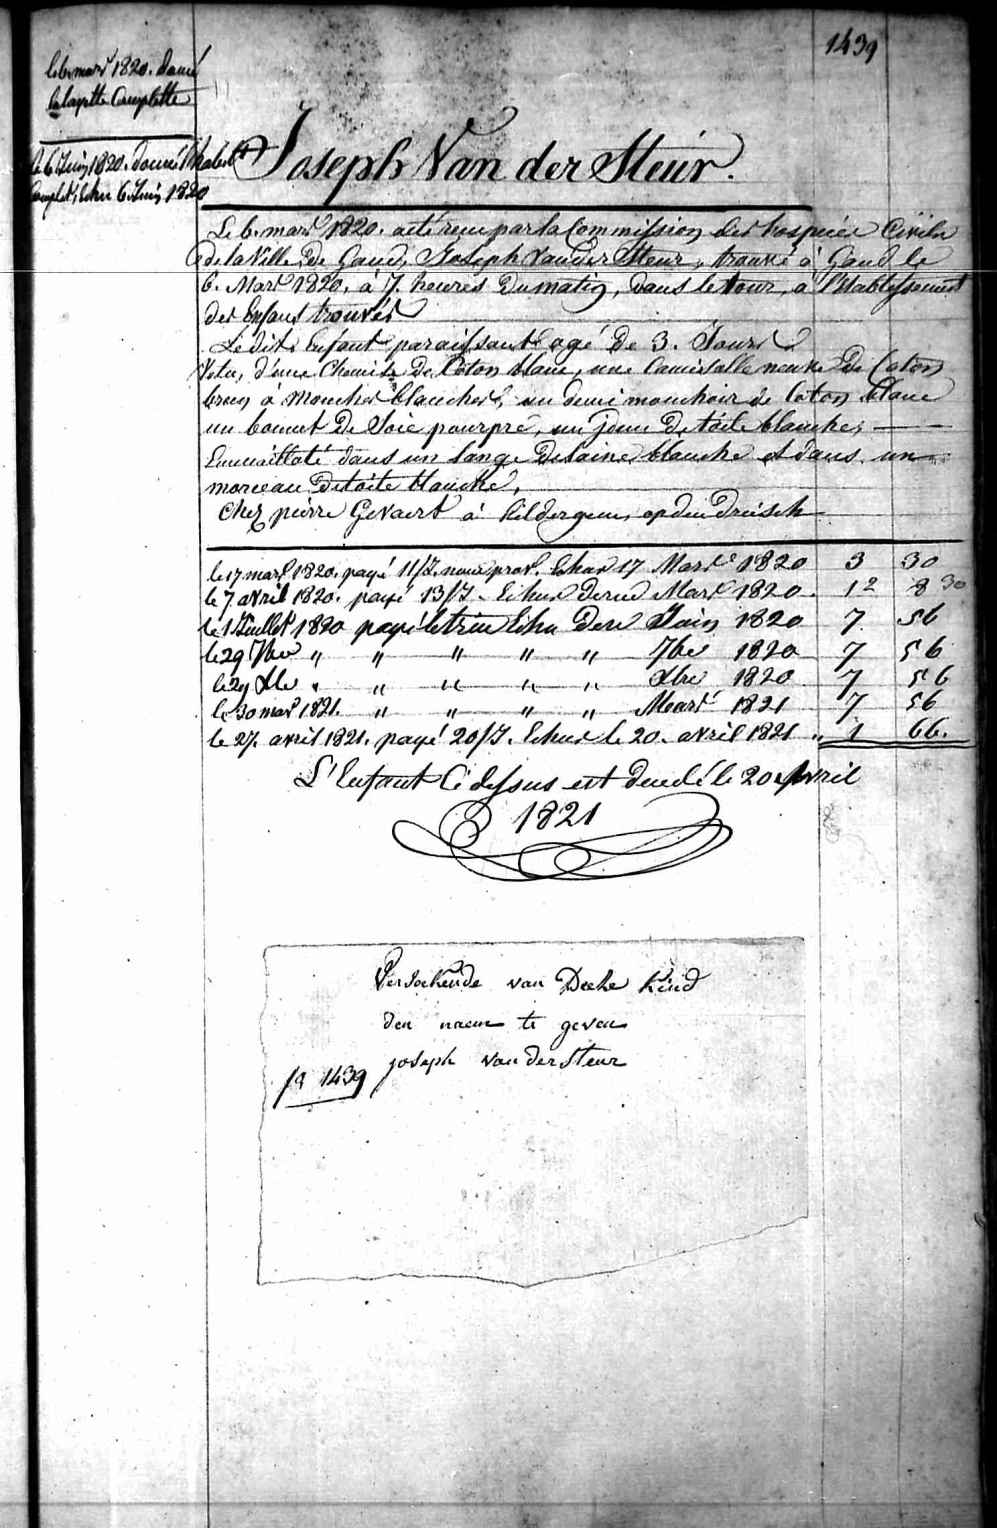 1439
le 6 mars 1820. donné
la layette Complette
le 6 Juin 1820. donné l'habill.t
Complet, Echu 6 Juin 1820
Joseph Van der Steur.
Le 6. mars 1820. a été reçu par la Commission des hospices Civils
de la Ville de Gand, Joseph Van der Steur, trouvé à Gand le
6. Mars 1820, à 7. heures du matin, dans le tour, à l'Etablissement
des Enfans trouvés
Le dit Enfant paraissant agé de 3. Jours
Vetu, d'une Chemise de Coton blanc, une Camisolle neuve de Coton
brun à mouches blanches, un demi mouchoir de Coton blanc
un bonnet de Soie pourpre, un idem de toile blanche,
Emmailloté dans un lange de laine blanche et dans un
morceau de toile blanche,
Chez pierre Gevaert à Hildergem, op den Driesch
le 17 mars 1820. payé 11/J. nour prov. Echus 17 Mars 1820 3 30
le 7 avril 1820. payé 13/J. Echus dernd Mars 1820. 12 8 30
le 1 Juillet 1820 payé le trim Echu dern Juin 1820 7. 56
le 29 7bre " " " " " 7bre 1820 7 56
le 29 Xbre " " " " " Xbre 1820 7 56
le 30 mars 1821. " " " " Mars 1821 7 56
le 27. avril 1821. payé 20/J. Echus le 20. avril 1821 .. 1 66.
L'Enfant Ci dessus est decedé le 20 Avril
1821
Versoekende van Deese Kind
den naem te geven
joseph van der Steur
1439